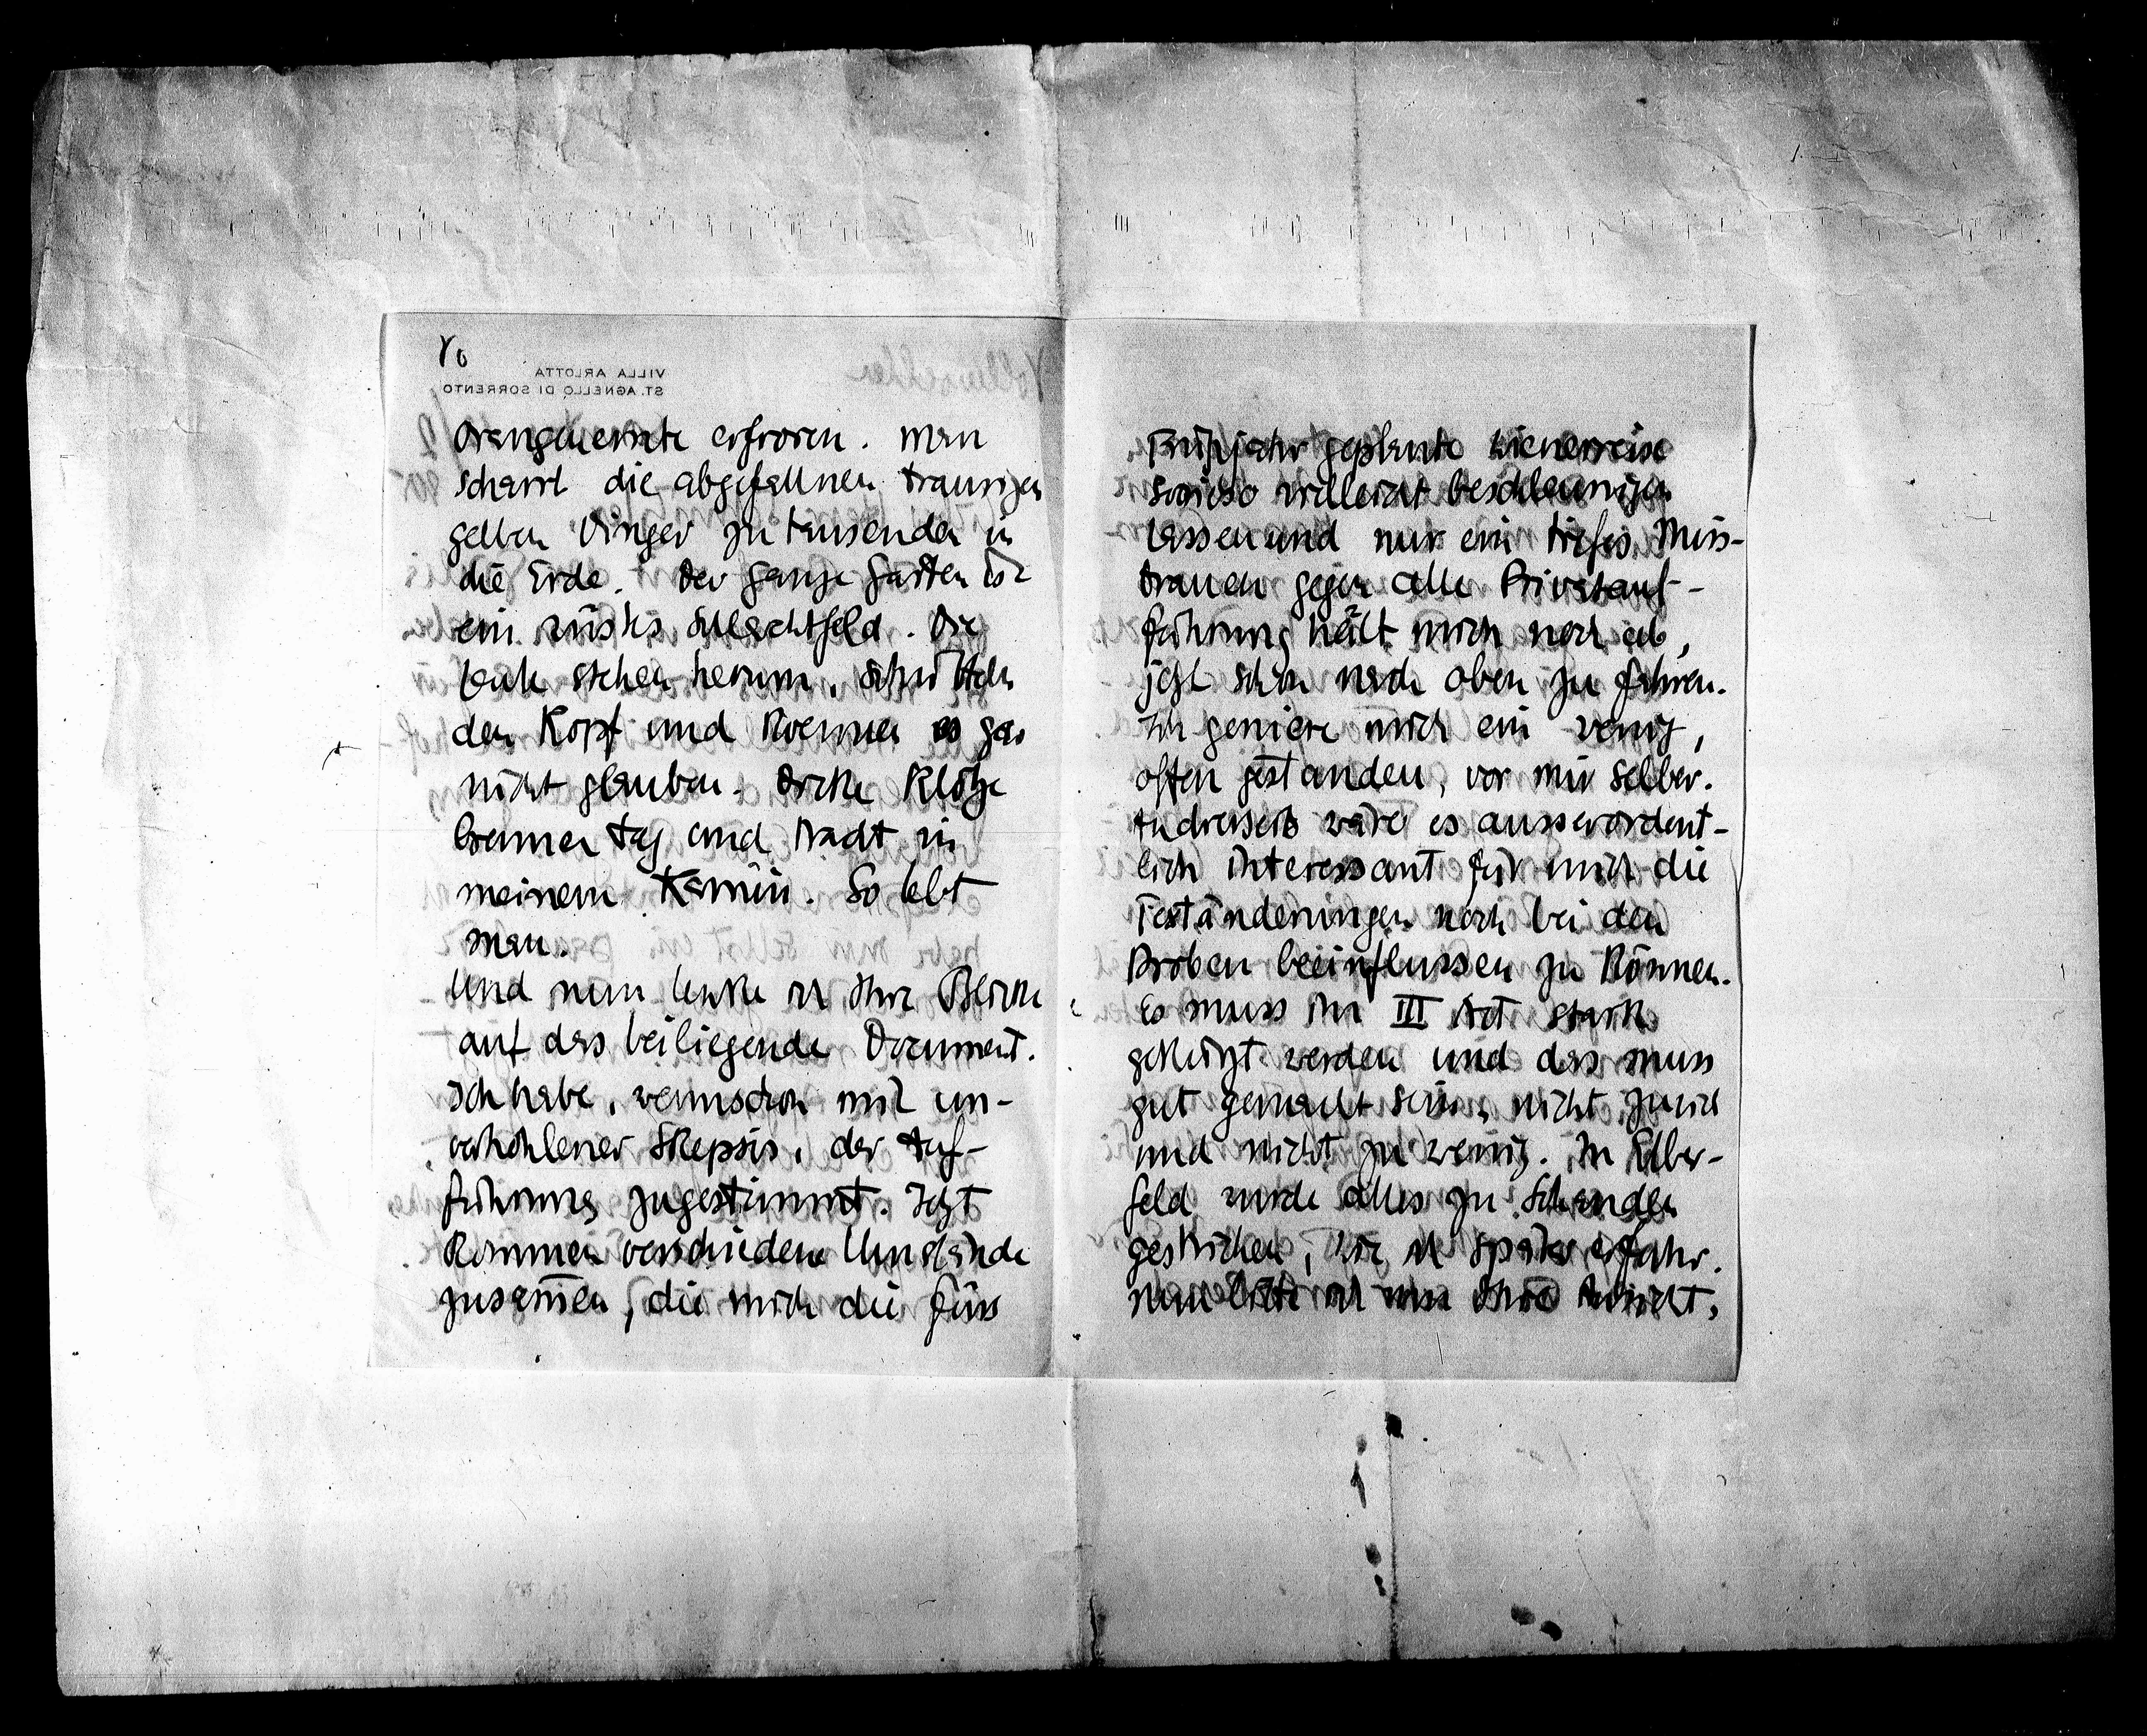 Vo
VILLA ARLOTTA
ST. AGNELLO DI SORRENTO
Orangenernte erfroren. Man
scharrt die abgefallnen traurigen
gelben Dinger zu tausenden in
die Erde. Der ganze Garten ist
ein wüstes Schlachtfeld. Die
Leute stehen herum, schütteln
den Kopf und koennen es gar
nicht glauben. Dicke Klötze
brennen Tag und Nacht in
meinem Kamin. So lebt
man.
Und nun lenke ich Ihre Blicke
auf das beiliegende Document.
Ich habe, wennschon mit un-
verhohlener Skepsis, der Auf-
führung zugestimmt. Jetzt
kommen verschiedene Umstände
zusam̅en, die mich die fürs
Frühjahr geplante Wienerreise
sowieso vielleicht beschleunigen
lassen und nur ein tiefes Miss-
trauen gegen alle Privatauf-
führung hält mich noch ab,
jetzt schon nach oben zu fahren.
Ich geniere mich ein wenig,
offen gestanden, vor mir selber.
Andrerseits wäre es ausserordent-
lich interessant für mich die
Textänderungen noch bei den
Proben beeinflussen zu können.
Es muss im III Act stark
gekürzt werden und das muss
gut gemacht sein, nicht zuviel
und nicht zu wenig. In Elber-
feld wurde alles zu Schanden
gestrichen, wie ich später erfahr.
Nun bitte ich um Ihre Ansicht,